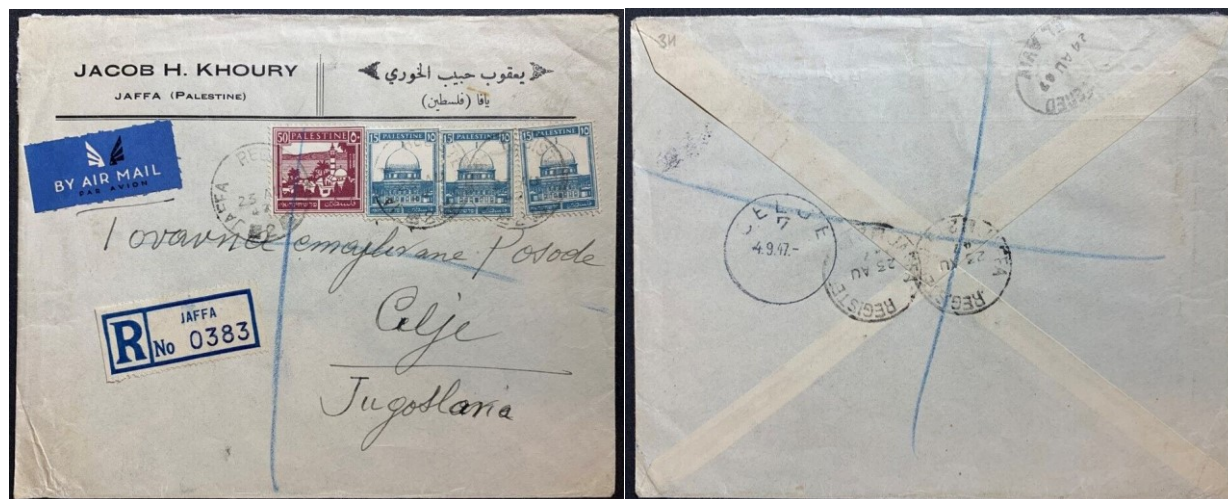 JACOB H. KHOURY
JAFFA (PALESTINE)
يعقوب حبيب الخوري
يافا (فلسطين)
BY AIR MAIL
PAR AVION
50 PALESTINE ٥٠
15 PALESTINE ١٥
15 PALESTINE ١٥
15 PALESTINE ١٥
JAFFA
23
47
Tovavna emajlirane Posode
Celje
Jugoslavia
R
JAFFA
No 0383
34
24 AU 47
CELJE
7
4.9.47.-
REGISTE
23 AU
JAFFA
REGISTE
23 AU